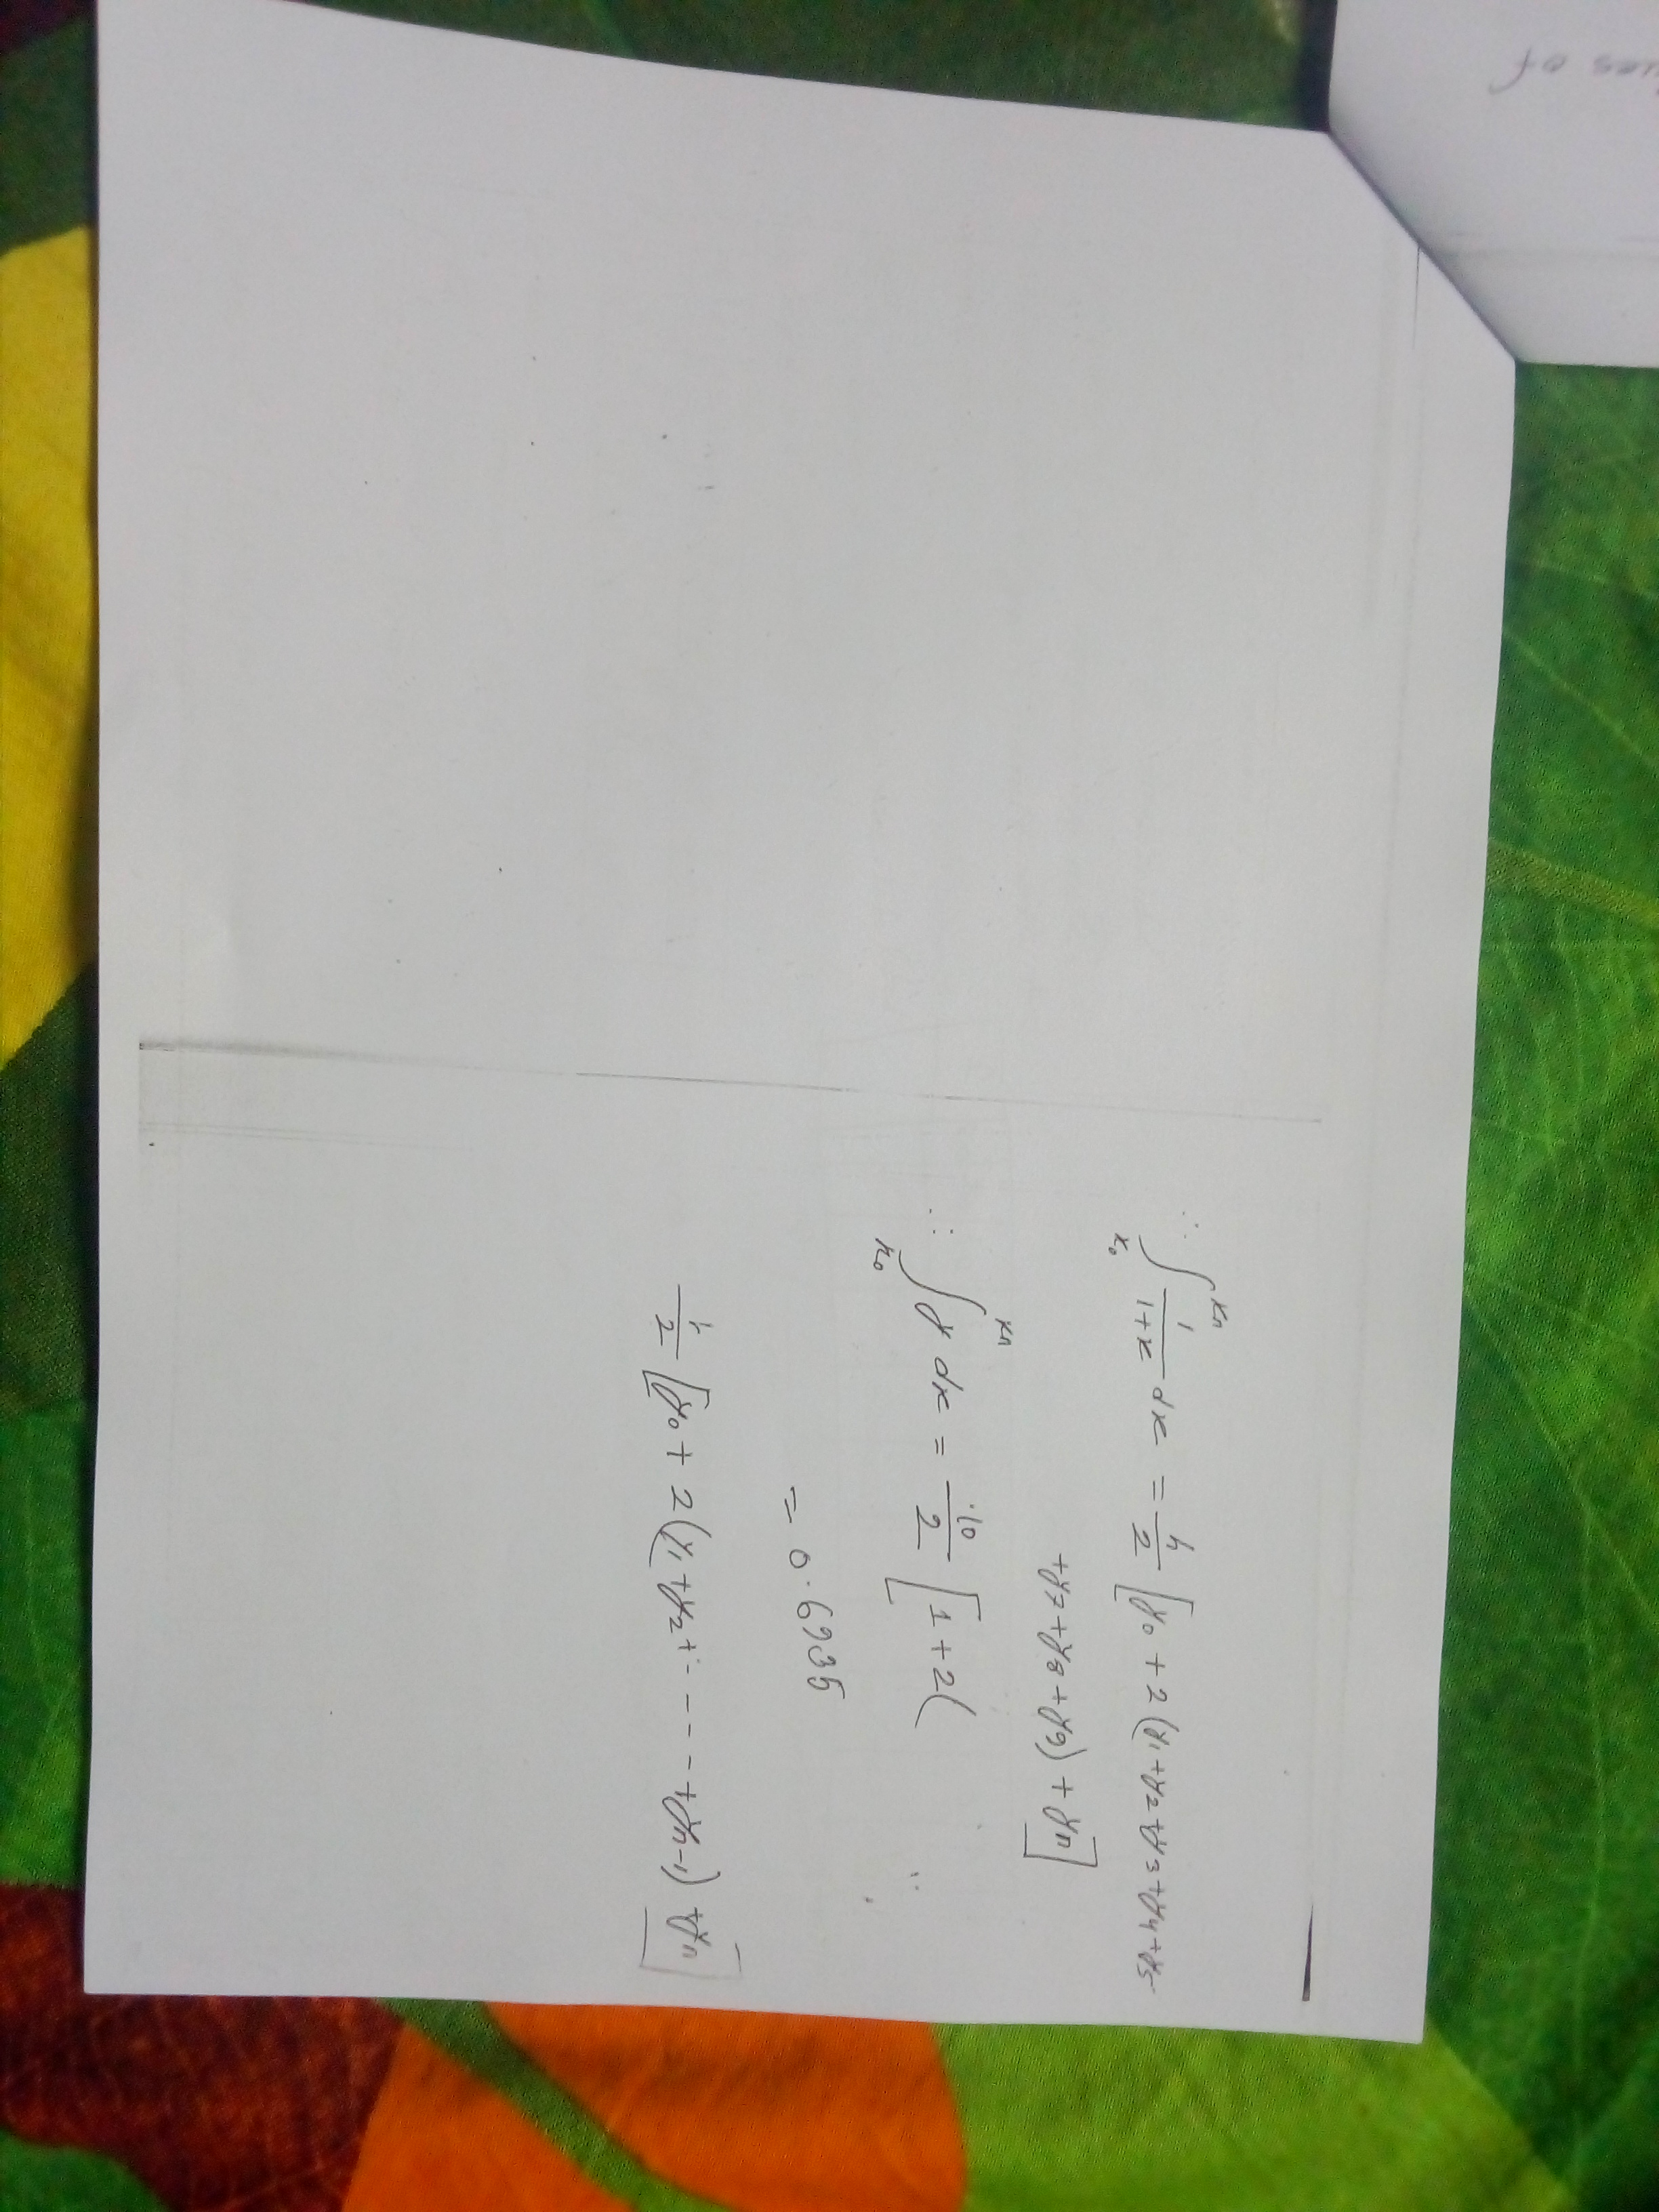 ∴ ∫_{x₀}^{xn} 1/(1+x) dx = h/2 [y₀ + 2 (y₁+y₂+y₃+y₄+y₅
+y₇+y₈+y₉) + yn]
∴ ∫_{x₀}^{xn} y dx = ·10/2 [1+2(
= 0.6935
h/2 [y₀ + 2(y₁+y₂+-----+yn-1) +yn]